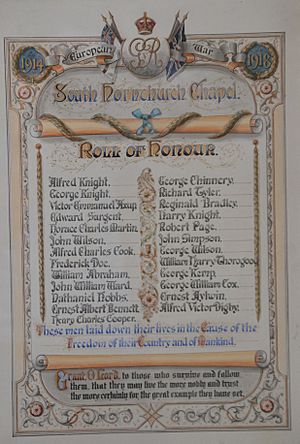 1914
European War
1918
GR
South Hornchurch Chapel.
Roll of Honour.
Alfred Knight.
George Knight.
Victor Emmanuel Jixup.
Edward Sargent.
Horace Charles Martin.
John Wilson.
Alfred Charles Cook.
Frederick Doe.
William Abraham.
John William Ward.
Nathaniel Hobbs.
Ernest Albert Bennett.
Henry Charles Cooper.
George Chinnery.
Richard Tyler.
Reginald Bradley.
Harry Knight.
Robert Page.
John Simpson.
George Wilson.
William Harry Thorogood.
George Kemp.
George William Cox.
Ernest Aylwin.
Alfred Victor Digby.
These men laid down their lives in the Cause of the
Freedom of their Country and of Mankind.
Grant, O Lord, to those who survive and follow
them, that they may live the more nobly and trust
the more certainly for the great example they have set.